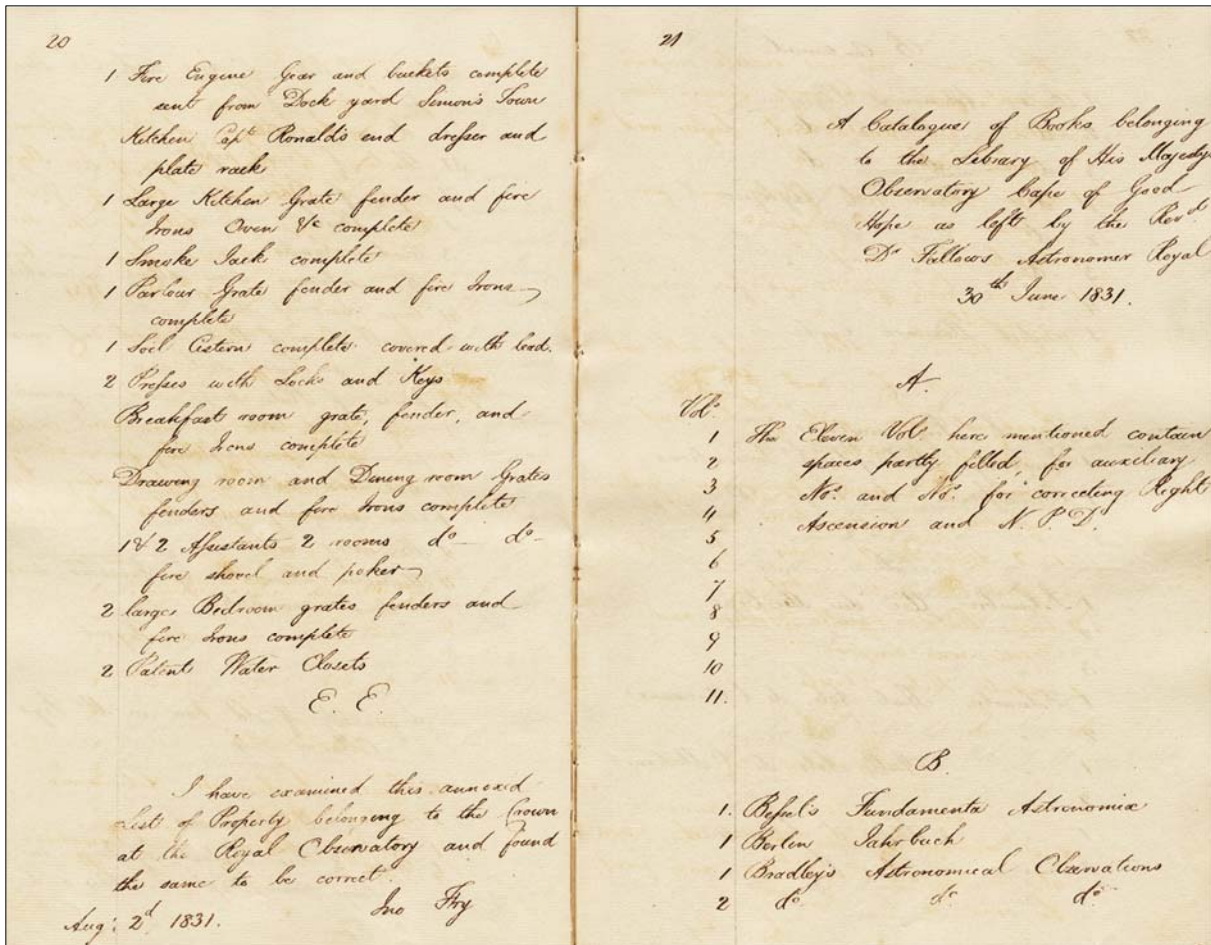 20
1 Fire Engine Gear and buckets complete
sent from Dock yard Simon's Town
Kitchen Capt Ronald's end dresser and
plate rack
1 Large Kitchen Grate fender and fire
Irons Oven &c complete
1 Smoke Jack complete
1 Parlour Grate fender and fire Irons
complete
1 Soil Cistern complete covered with lead.
2 Presses with Locks and Keys
Breakfast room grate, fender, and
fire Irons complete
Drawing room and Dining room Grates
fenders and fire Irons complete
1 & 2 Assistants 2 rooms do do
fire shovel and poker
2 large Bedroom grates fenders and
fire Irons complete
2 Patent Water Closets
E. E.
I have examined this annexed
List of Property belonging to the Crown
at the Royal Observatory and found
the same to be correct.
Jno Fry
Aug: 2d 1831.
21
A Catalogue of Books belonging
to the Library of His Majesty's
Observatory Cape of Good
Hope as left by the Revd
Dr Fallows Astronomer Royal
30th June 1831.
A.
Vols.
1 The Eleven Vol. here mentioned contain
2 spaces partly filled, for auxiliary
3 Nos. and Nos. for correcting Right
4 Ascension and N. P. D.
5
6
7
8
9
10
11.
B.
1. Bessel's Fundamenta Astronomiæ
1 Berlin Jahrbuch
1 Bradley's Astronomical Observations
2 do. do do